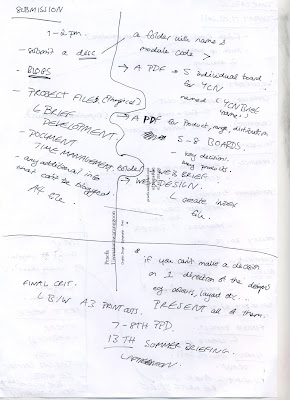 SUBMISSION
1-2pm.
- submit a disc
- BLOGS
- PROJECT FILES (Physical)
↳ BRIEF
DEVELOPMENT
- DOCUMENT
TIME MANAGEMENT
- any additional info
what can't be blogged
A4 file
a folder with name &
module code >
→ A PDF - 5 individual boards
for YCN
named (YCN BRIEF
name)
→ A PDF for Product, range, distribution
5-8 BOARDS.
- key decision.
- key products.
WEB BRIEF
→ WEB DESIGN
↳ create index
file.
FINAL CRIT.
↳ B/W A3 PRINT outs.
* if you can't make a decision
on 1 direction of the design
eg. colours, layout etc...
PRESENT all of them.
7-8TH FPD.
13TH SUMMER BRIEFING